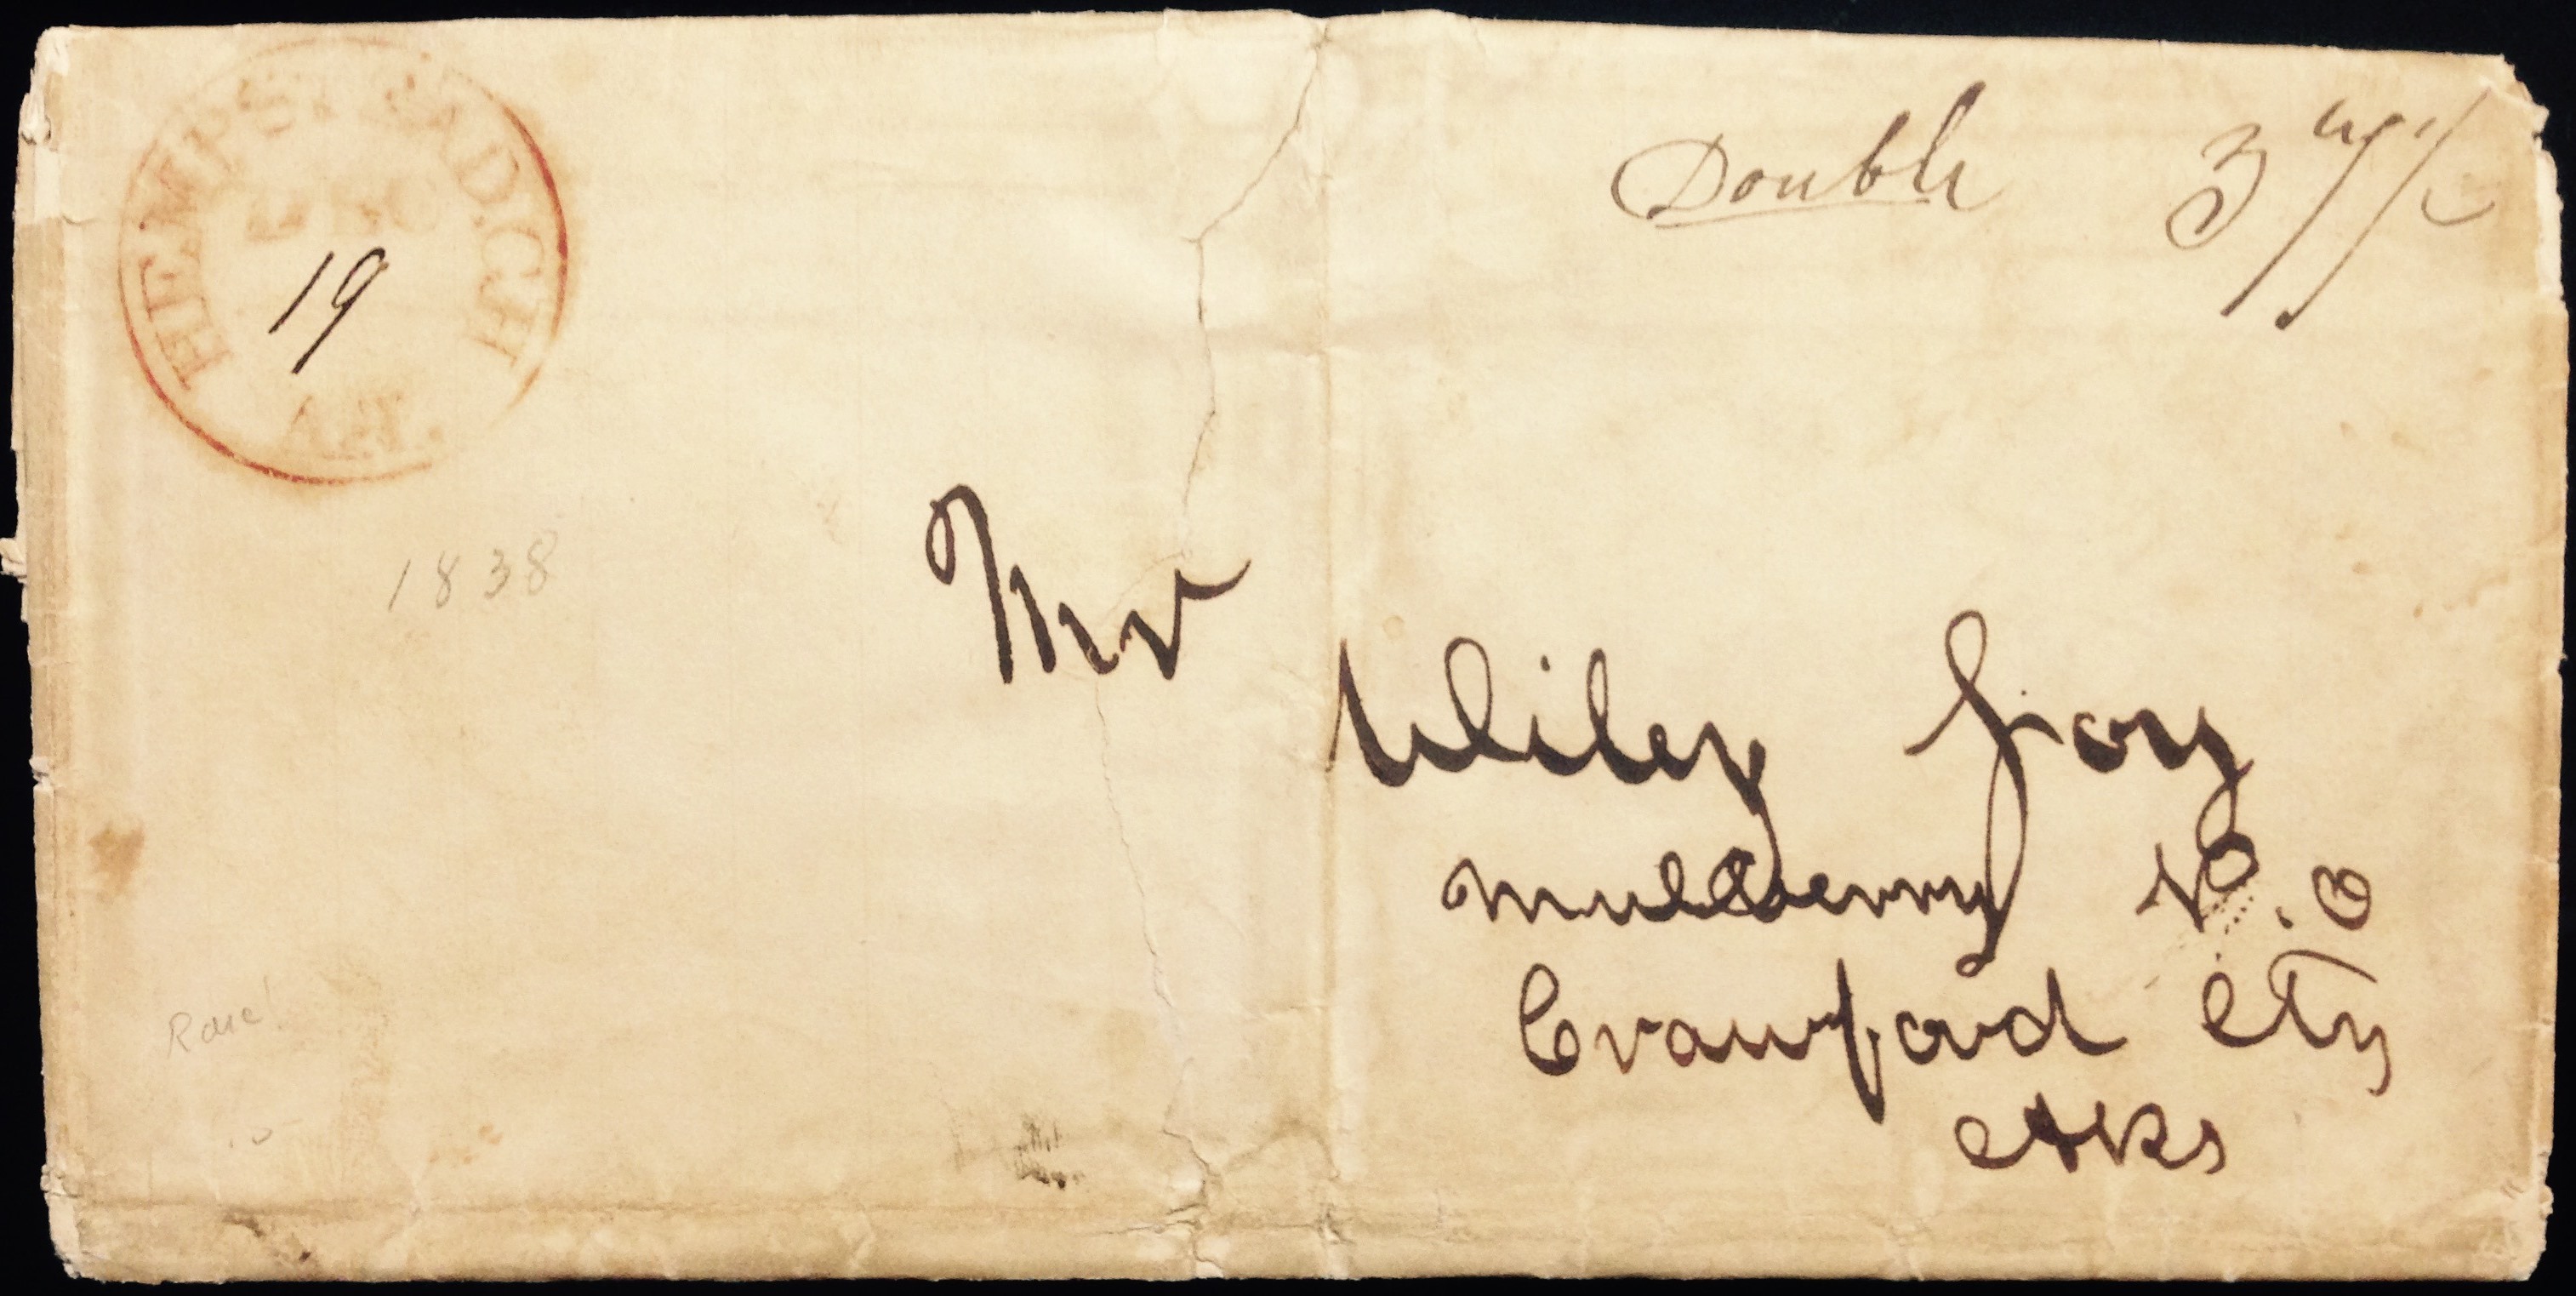 HEMPSTEAD.C.H
DEC
19
A.T.
Double
1838
Mr
Wiley Joy
Mulberry P.O
Crawford Cty
Arks
Rare!